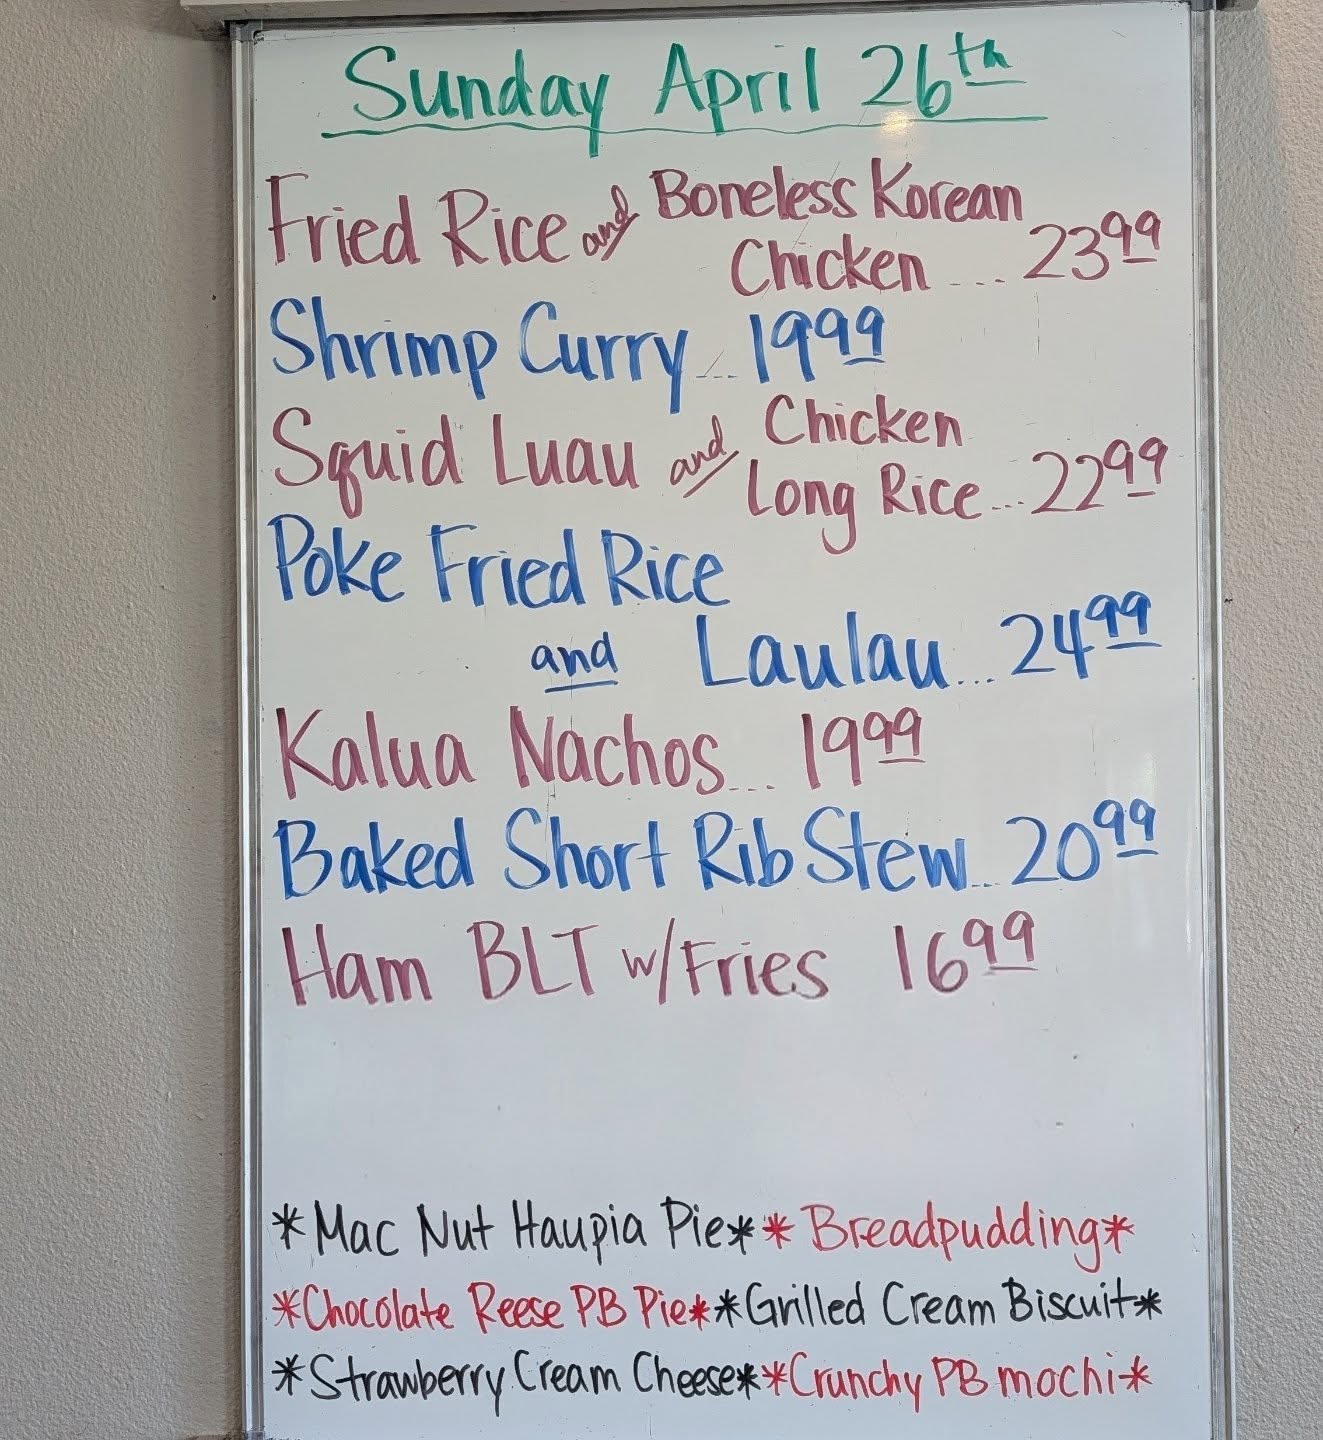 Sunday April 26th
Fried Rice and Boneless Korean
Chicken .... 23 99
Shrimp Curry .... 19 99
Squid Luau and Chicken
Long Rice ... 22 99
Poke Fried Rice
and Laulau ... 24 99
Kalua Nachos .... 19 99
Baked Short Rib Stew ... 20 99
Ham BLT w/Fries 16 99
*Mac Nut Haupia Pie* *Breadpudding*
*Chocolate Reese PB Pie* *Grilled Cream Biscuit*
*Strawberry Cream Cheese* *Crunchy PB mochi*